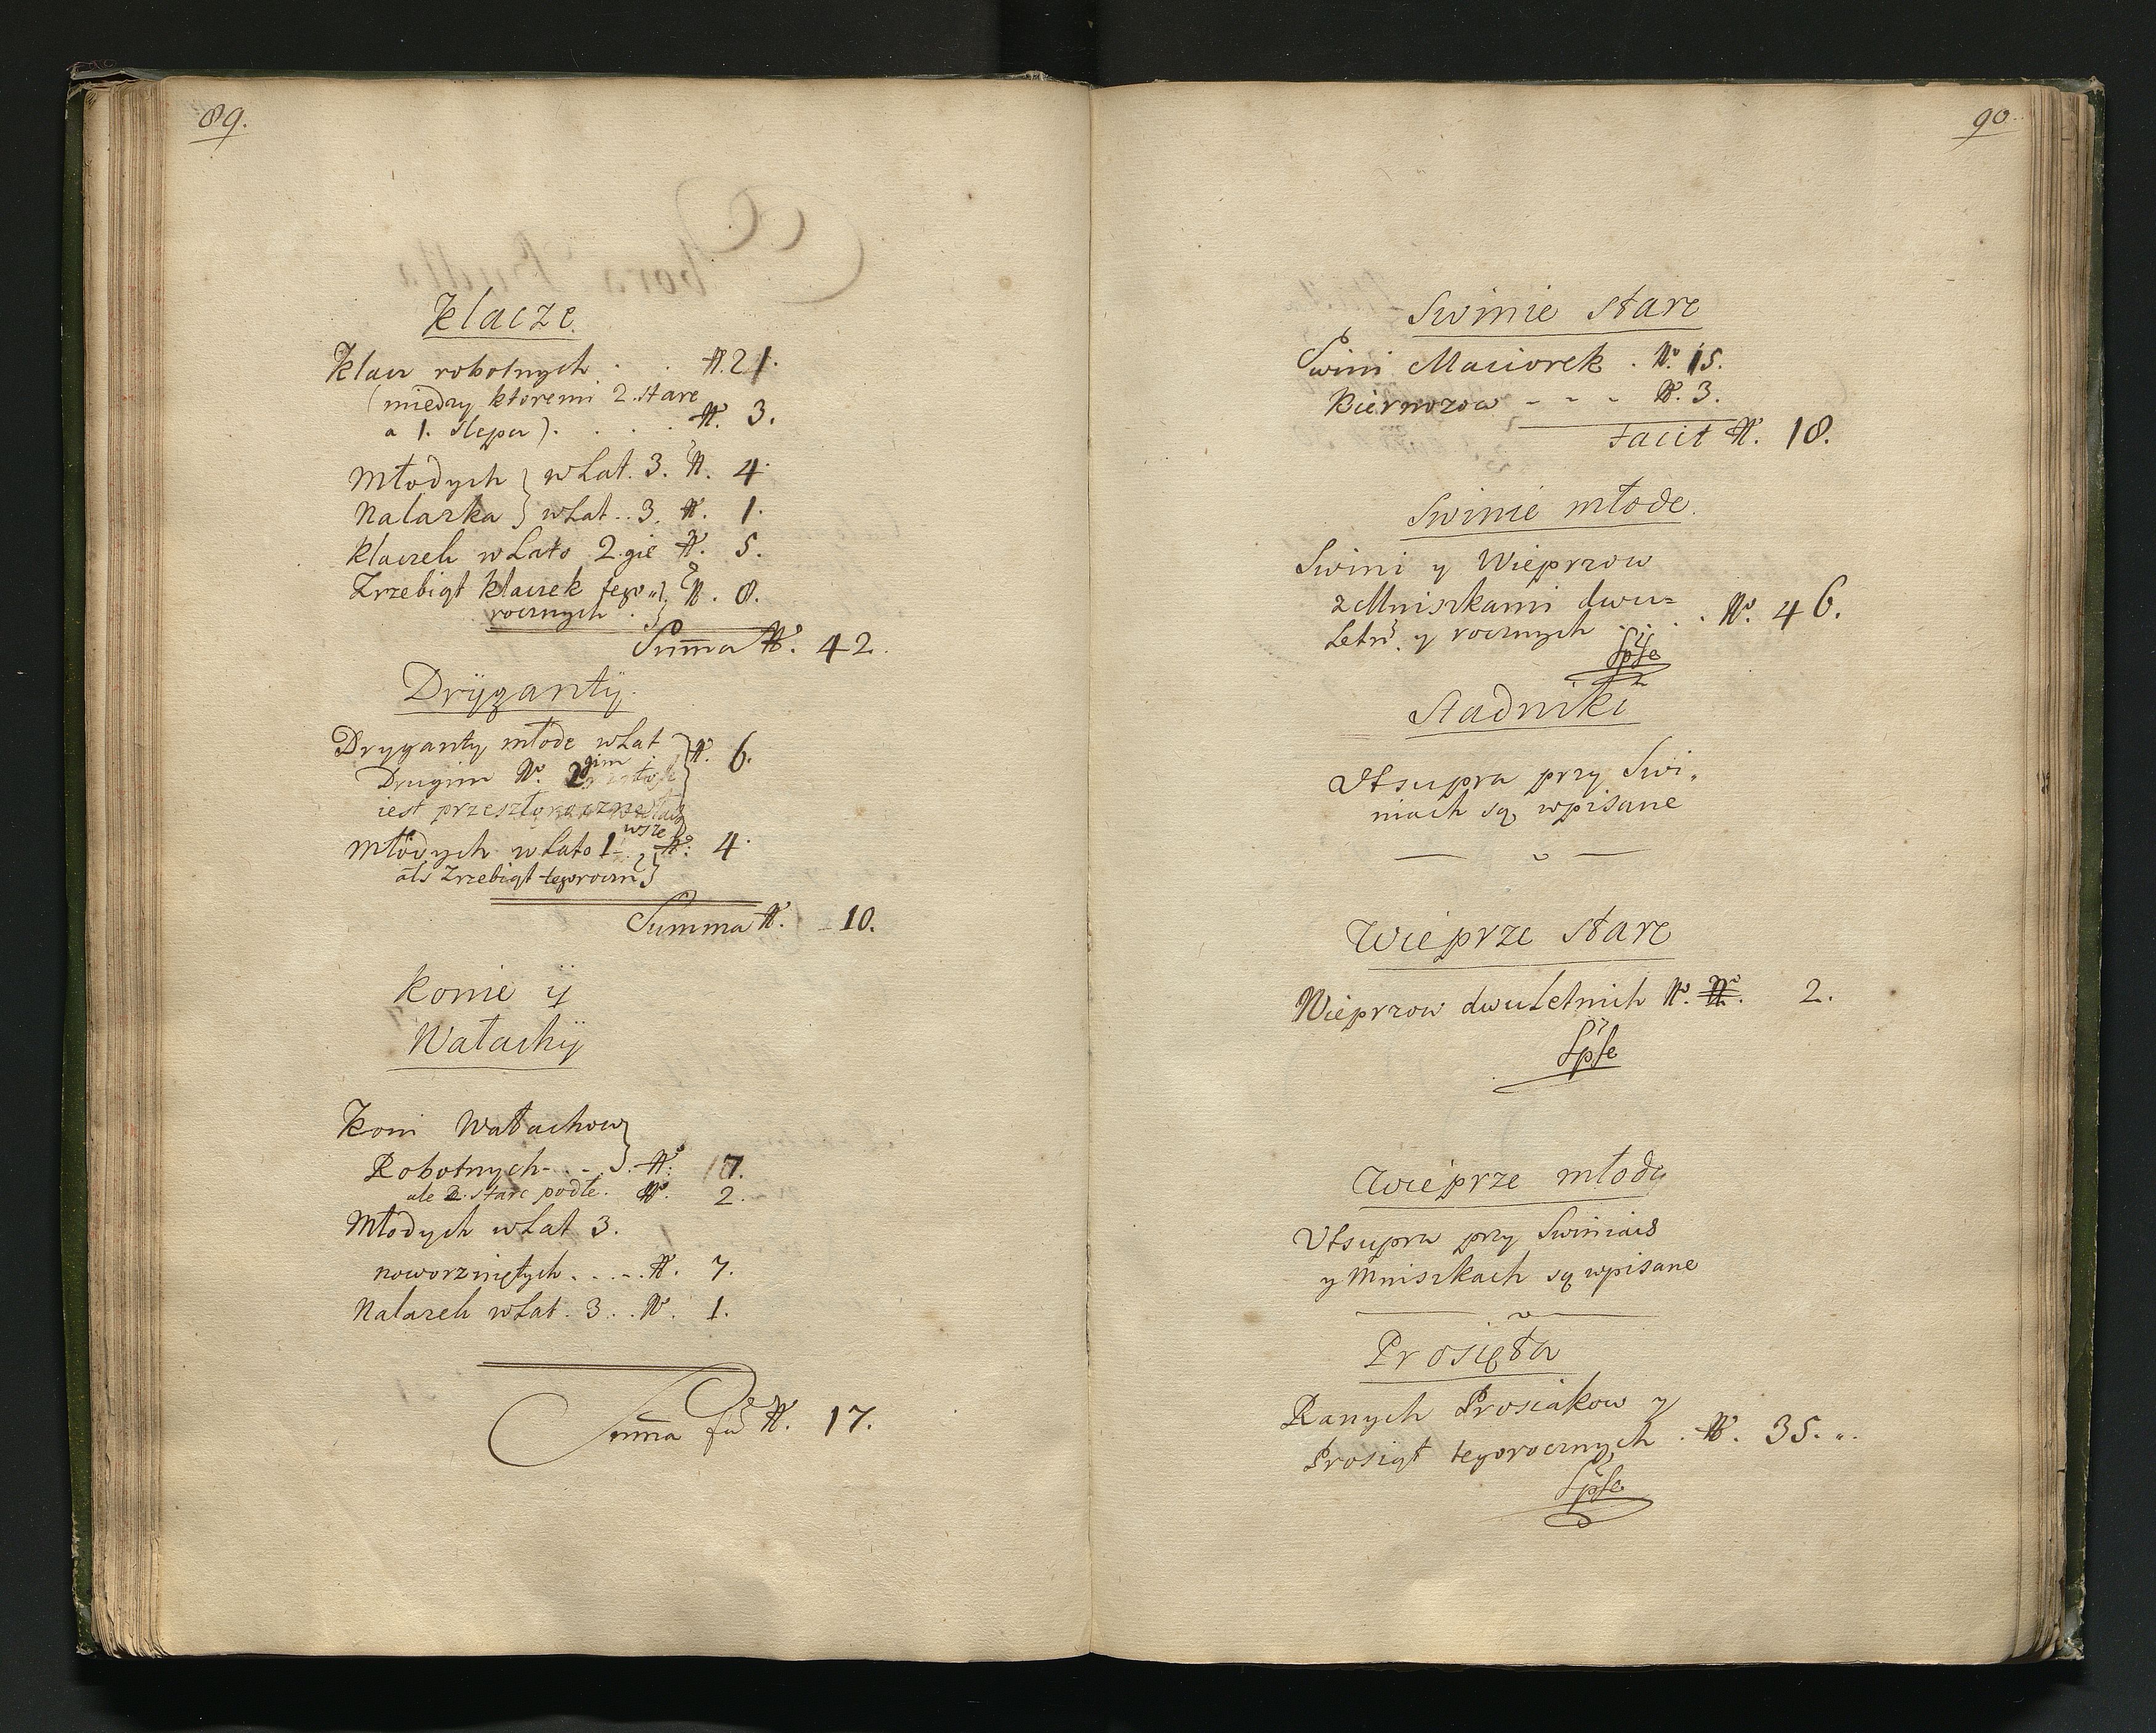 89.
Klacze
Klacz robotnych . . N. 21.
(między ktoremi 2. stare
a 1. slepa) . . . . N. 3.
Młodych } w Lat. 3. N. 4.
Nalaska } w Lat .. 3. N. 1.
Klaczek w Lato 2.gie N. 5.
Zrzebiąt klaczek tego
rocznych . } N. 8.
Summa No. 42.
Dryganty.
Dryganty młode w Lat
Drugim No. 2gim } N. 6.
iest przeszłoroczne
Młodych w Lato 1wsze No. 4.
als Zrzebiąt tegoroczn
Summa No. 10.
Konie ÿ
Wałachÿ
Koni Wałachow
Robotnych - . - . } No. 7.
ale 2. stare podłe. No. 2.
Młodych w Lat 3.
noworzniętych . . . - . N. 7.
Nalazek w Lat . 3 . . . N. 1.
Summa No. 17.
90.
Swinie stare
Swini Maciorek . No. 15.
Kiernozow - - - No. 3.
facit No. 18.
Swinie młode.
Swini y Wieprzow
z Mniszkami dwu=
Letn. y rocznych . . . . No. 46.
Ipse
Stadniki
Utsupra przy Swi„
niach są wpisane
Wieprze stare
Wieprzow dwuletnich No. No. 2.
Ipse
Wieprze młode
Utsupra przy Swiniach
y Mniszkach są wpisane
Prosięta
Ranych Prosiakow y
Prosiąt tegorocznych . No. 35. „.
Ipse